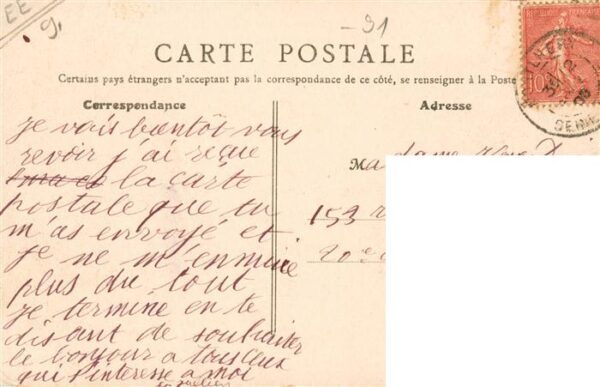 EE
g.
-91
CARTE POSTALE
Certains pays étrangers n'acceptant pas la correspondance de ce côté, se renseigner à la Poste
Correspondance
je vais bientôt vous
revoir j'ai reçue
la carte
postale que tu
m'as envoyé et
je ne m'ennuie
plus du tout
je termine en te
disant de souhaiter
le bonjour a tous ceux
qui s'interesse a moi
Adresse
Madame
153
20e
10